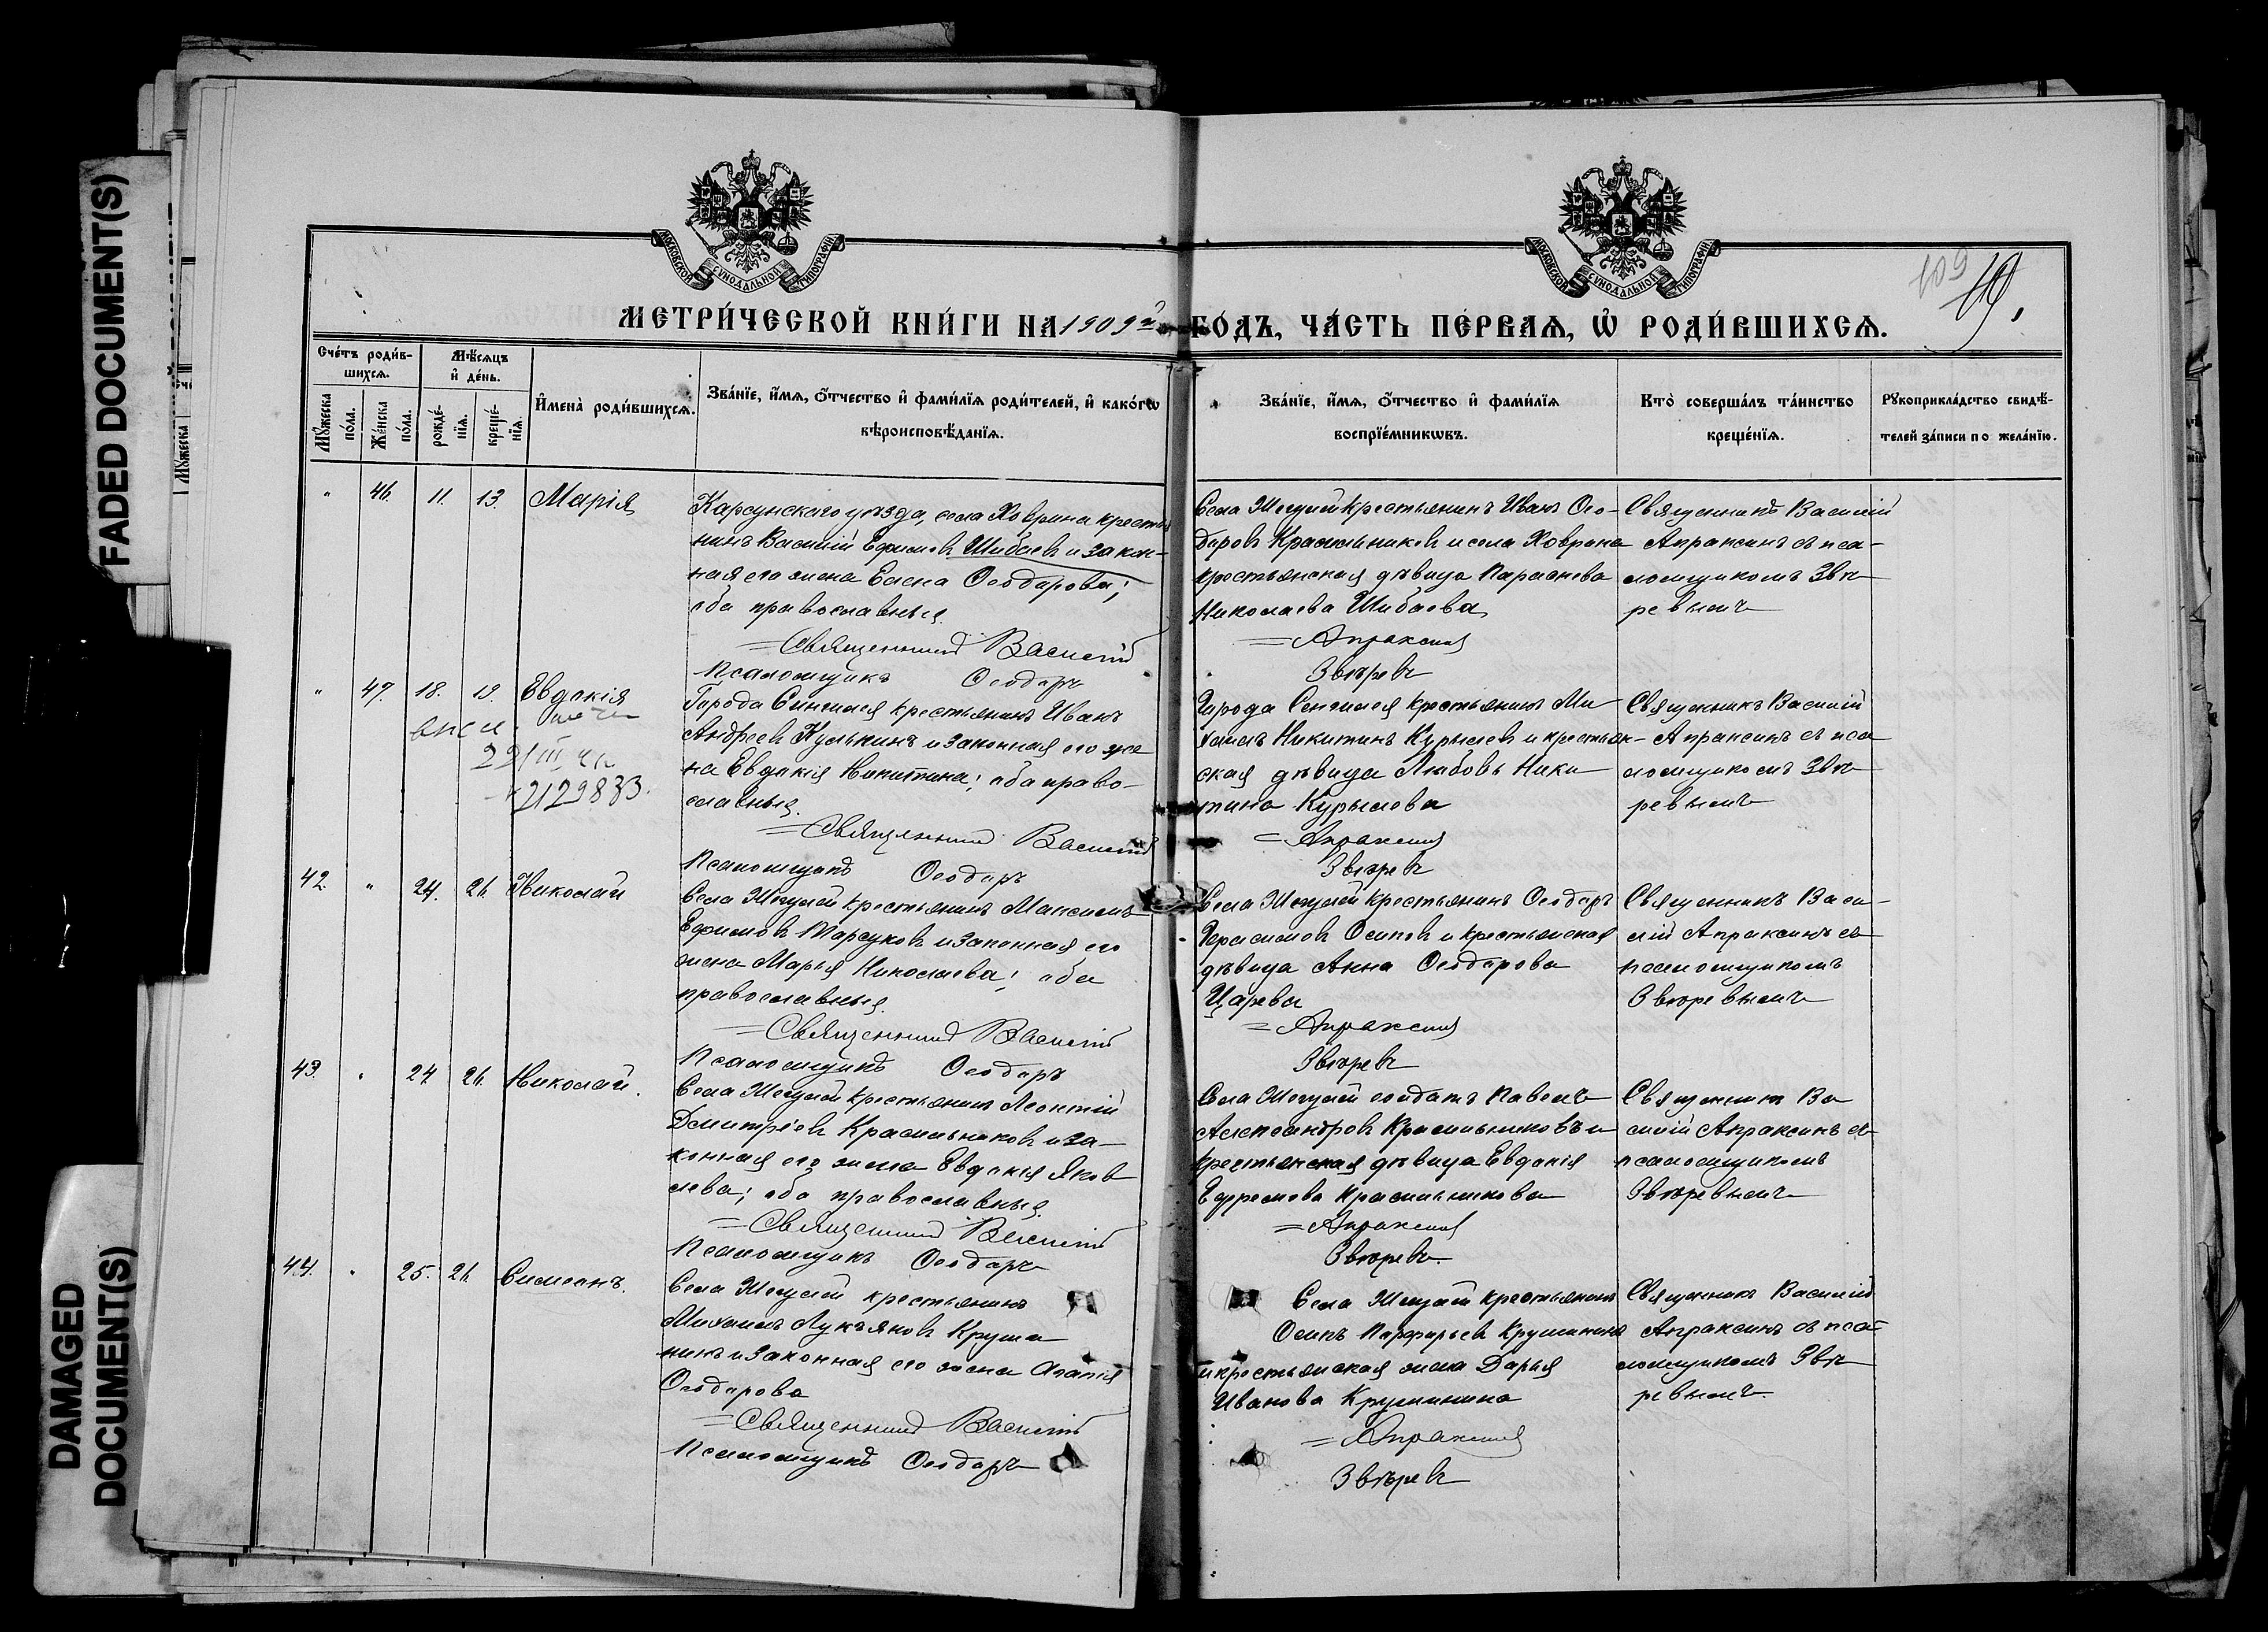 FADED DOCUMENT(S)
DAMAGED
DOCUMENT(S)
МОСКОВСКОЙ СУНОДАЛЬНОЙ ТИПОГРАФІИ
МОСКОВСКОЙ СУНОДАЛЬНОЙ ТИПОГРАФІИ
109
МЕТРИ́ЧЕСКОЙ КНИ́ГИ НА 1909й ГО́ДЪ, ЧА́СТЬ ПЕ́РВАѦ, Ѡ҆ РОДИ́ВШИХСѦ.
Сче́тъ роди́в-
шихсѧ.
Мѣ́сѧцъ
и҆ де́нь.
Мꙋ́жеска
по́ла.
Же́нска
по́ла.
рожде́-
нїѧ.
креще́-
нїѧ.
И҆мена̀ роди́вшихсѧ.
Зва́нїе, и҆́мѧ, ѻ҆́тчество и҆ фами́лїѧ роди́телей, и҆ како́гѡ
вѣроисповѣ́данїѧ.
Зва́нїе, и҆́мѧ, ѻ҆́тчество и҆ фами́лїѧ
воспрїе́мникѡвъ.
Кто̀ соверша́лъ та́инство
креще́нїѧ.
Рꙋкоприкла́дство свидѣ́-
телей за́писи по жела́нїю.
" 46. 11. 13. Марія
Карсунскаго уѣзда, села Ховрина крестья
нинъ Василій Ефимовъ Шибаевъ и закон-
ная его жена Елена Ѳеодорова;
оба православные.
=Священникъ Василій
Псаломщикъ Ѳеодоръ
Села крестьянинъ Иванъ Ѳео-
доровъ Красильниковъ и села Ховрина
крестьянская дѣвица Параскева
Николаева Шибаева
=Апраксинъ
Звѣревъ
Священникъ Василій
Апраксинъ съ пса-
ломщикомъ Звѣ
ревымъ
" 47. 18. 19. Евдокія
22/III
2129833.
Города Сингилея крестьянинъ Иванъ
Андреевъ Кулькинъ и законная его же
на Евдокія Никитина; оба право-
славные.
=Священникъ Василій
Псаломщикъ Ѳеодоръ
Города Сенгилея крестьянинъ Ми
хаилъ Никитинъ Курылевъ и крестьян-
ская дѣвица Любовь Ники
тина Курылева
=Апраксинъ
Звѣревъ
Священникъ Василій
Апраксинъ съ пса
ломщикомъ Звѣ
ревымъ
42. " 24. 26. Николай
Села крестьянинъ Максимъ
Ефимовъ Марсуковъ и законная его
жена Марья Николаева; оба
православные.
=Священникъ Василій
Псаломщикъ Ѳеодоръ
Села крестьянинъ Ѳеодоръ
Герасимовъ Осиповъ и крестьянская
дѣвица Анна Ѳеодорова
Царева
=Апраксинъ
Звѣревъ
Священникъ Васи-
лій Апраксинъ съ
псаломщикомъ
Звѣревымъ
43. " 24 26. Николай.
Села крестьянинъ Леонтій
Дмитріевъ Красильниковъ и за-
конная его жена Евдокія Яков
лева; оба православные.
=Священникъ Василій
Псаломщикъ Ѳеодоръ
Села солдатъ Павелъ
Александровъ Красильниковъ и
крестьянская дѣвица Евдокія
Ефремова Красильникова
=Апраксинъ
Звѣревъ.
Священникъ Ва
силій Апраксинъ съ
псаломщикомъ
Звѣревымъ
44. " 25. 26. Симеонъ.
Села крестьянинъ
Михаилъ Лукъяновъ Круши
нинъ и законная его жена Агапія
Ѳеодорова
=Священникъ Василій
Псаломщикъ Ѳеодоръ
Села крестьянинъ
Осипъ Парфирьевъ Крушининъ
и крестьянская жена Дарья
Иванова Крушинина
=Апраксинъ
Звѣревъ
Священникъ Василій
Апраксинъ съ пса-
ломщикомъ Звѣ
ревымъ.